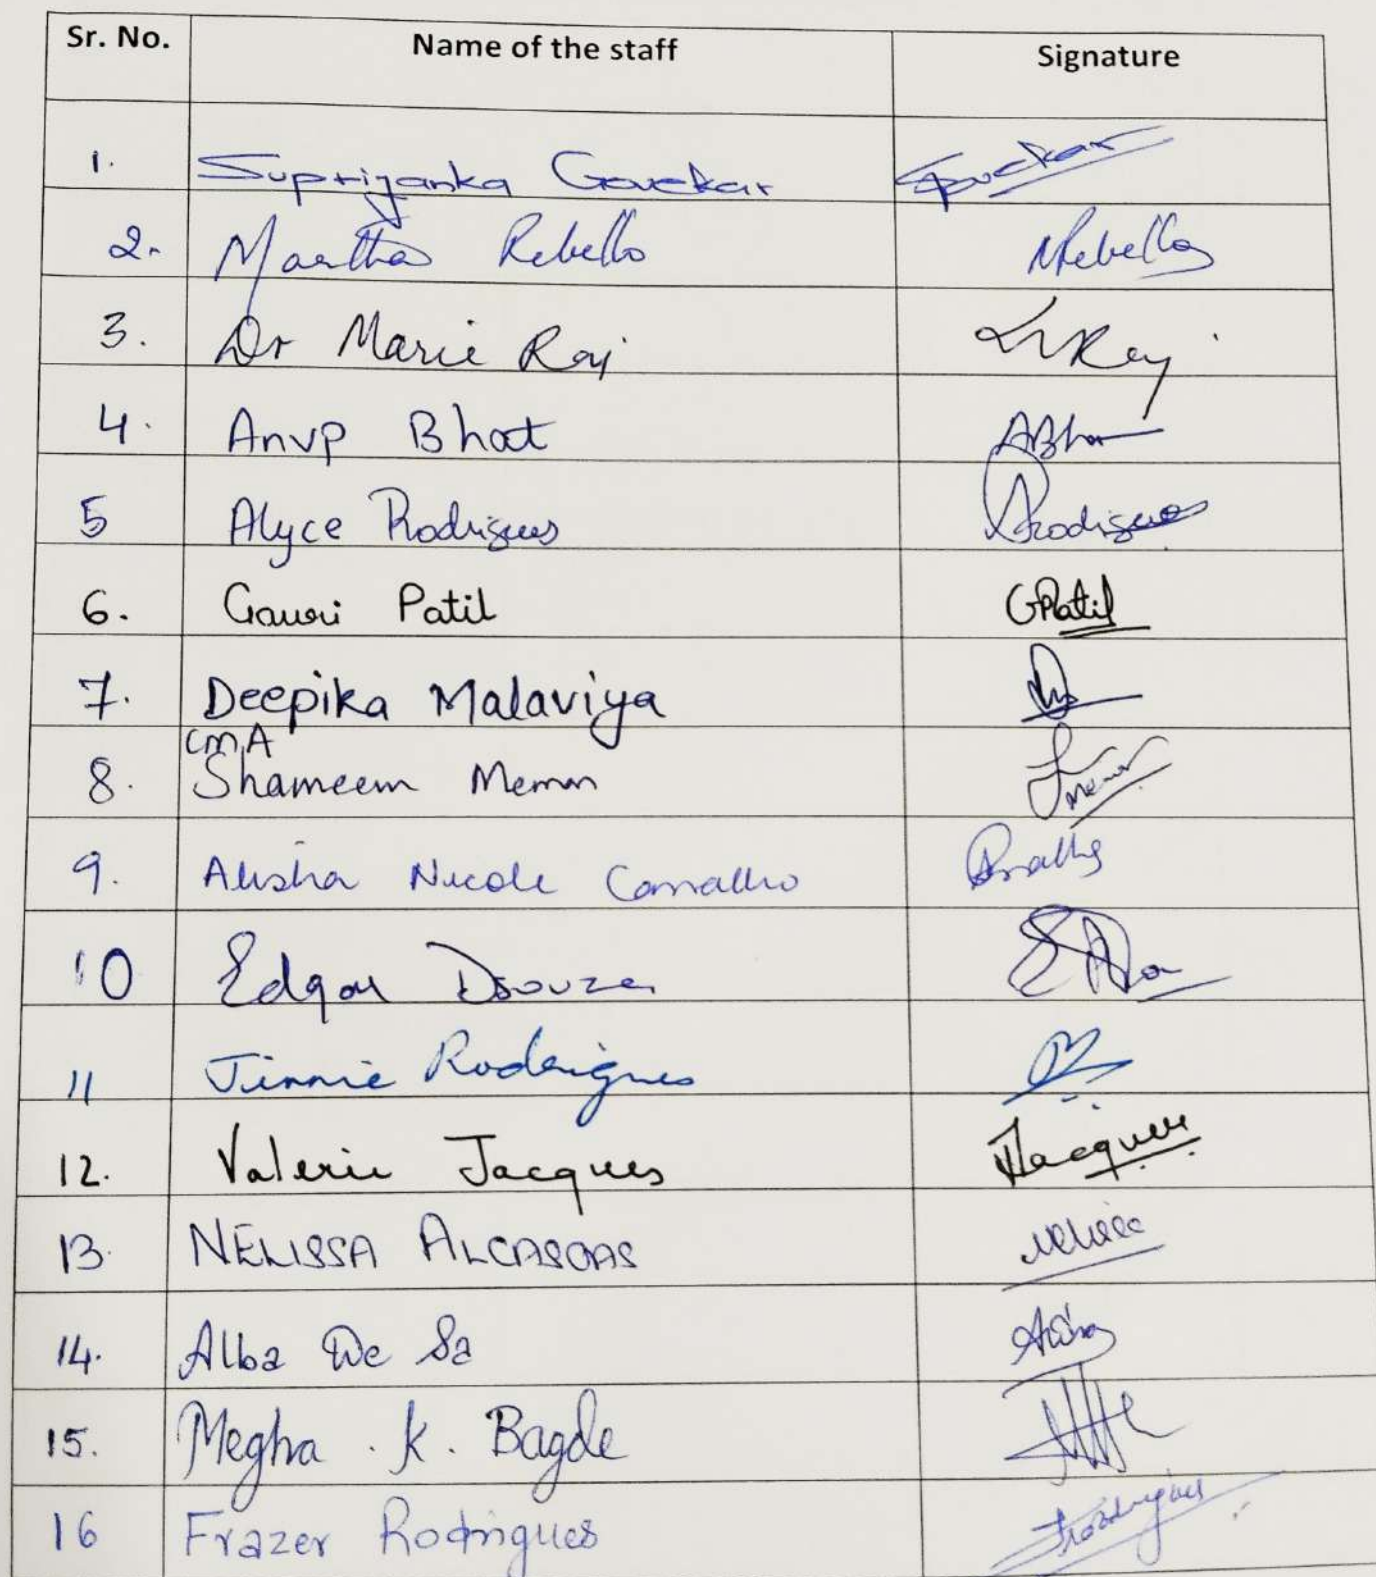 Sr. No. Name of the staff Signature
1. Supriyanka Govekar Govekar
2. Martha Rebello MRebello
3. Dr Marie Raj Raj
4. Anup Bhat ABha
5 Alyce Rodrigues ARodrigues
6. Gauri Patil GPatil
7. Deepika Malaviya
CMA
8. Shameem Memon Memon
9. Alisha Nicole Carvalho
10 Edgar Dsouza
11 Jinnie Rodrigues
12. Valerie Jacques VJacques
13. NELISSA ALCASOAS Nelissa
14. Alba De Sa
15. Megha . K. Bagde
16 Frazer Rodrigues FRodrigues